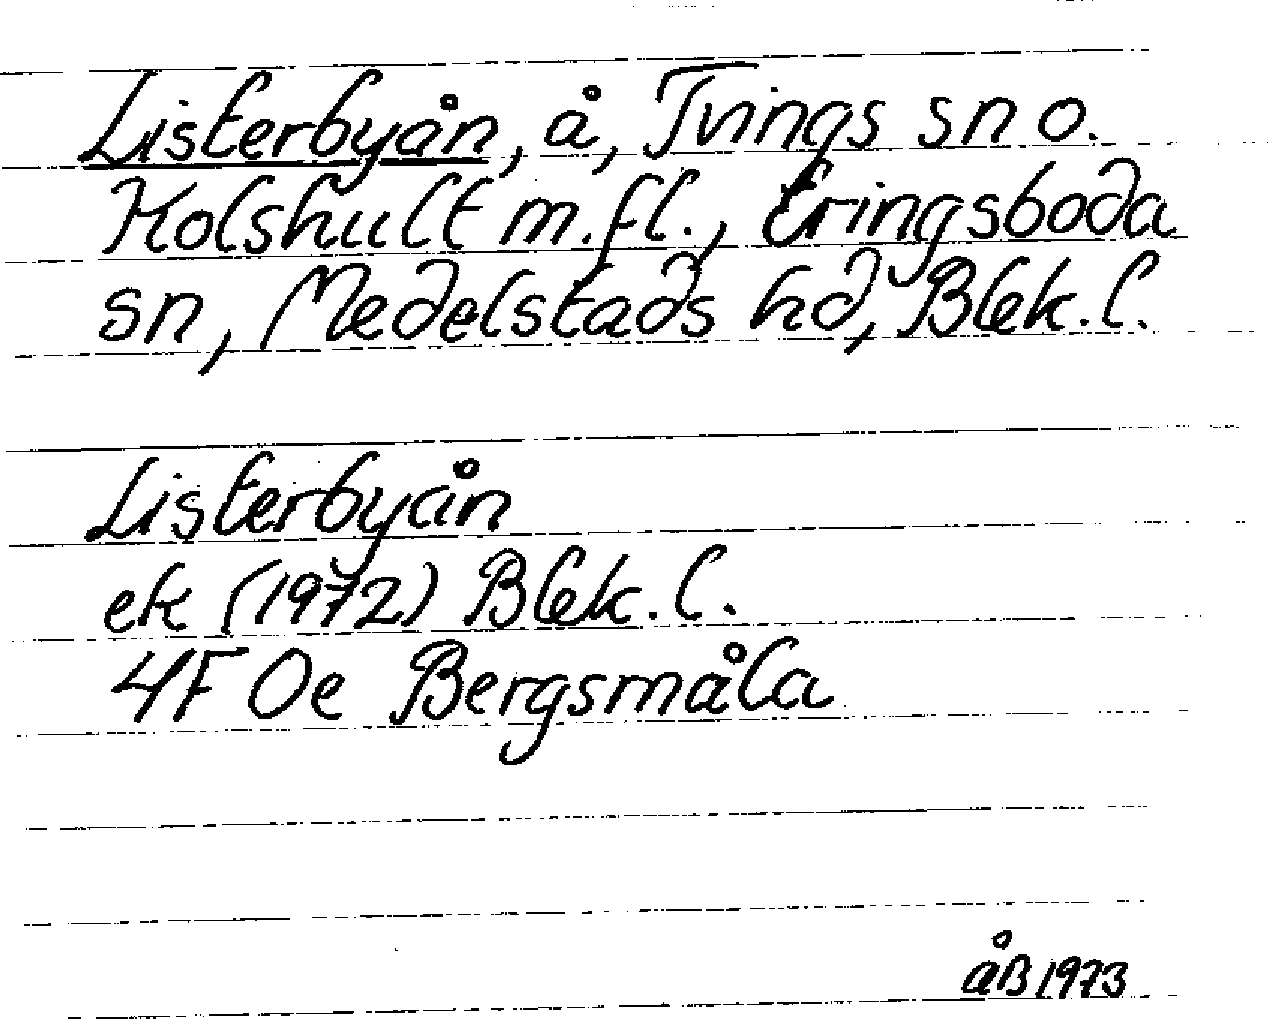 Listerbyån, å, Tvings sn o.
Holshult m.fl., Eringsboda
sn, Medelstads hd, Blek. l.
Listerbyån
ek (1972) Blek. l.
4F 0e Bergsmåla
åB 1973